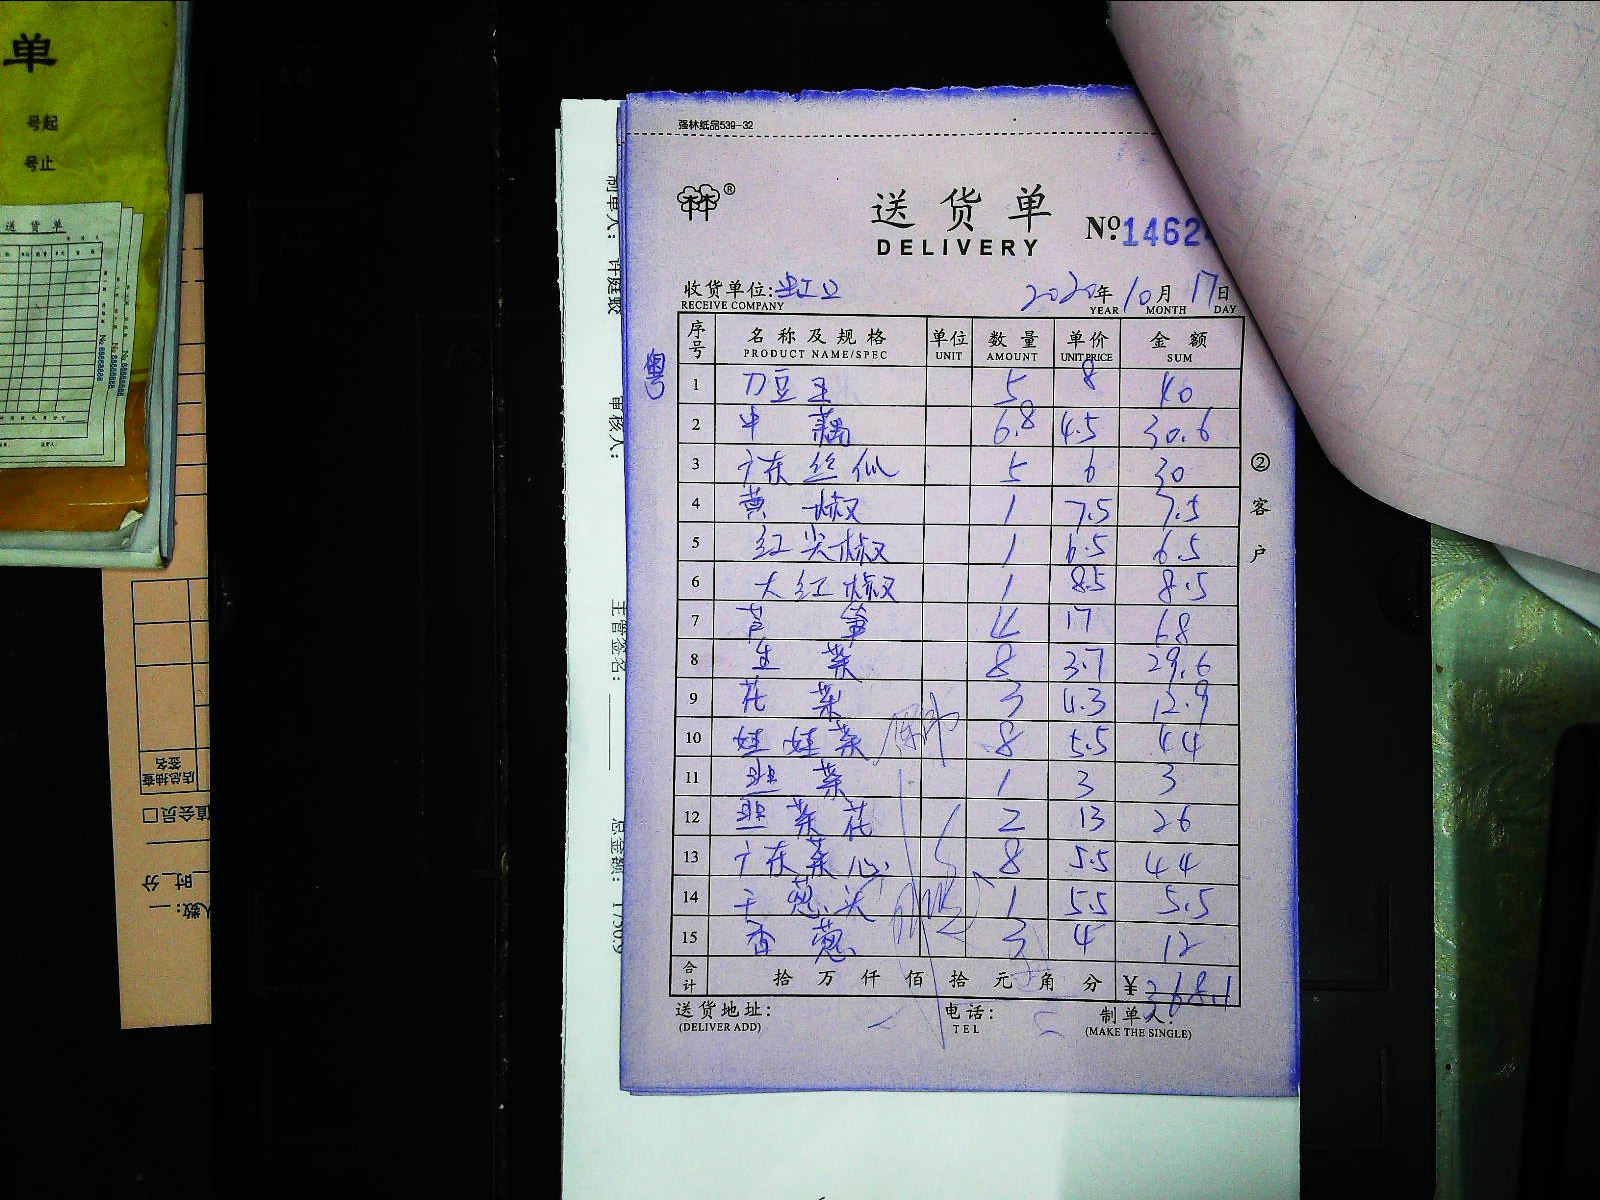 单
号起
号止
送 货 单
店总抽查
签名
值会员口
一时一分
人数:一
制单人: 许庭蛟
审核人:
主管签名:
总金额: 1750.9
强林纸品539-32
送 货 单
DELIVERY
№ 1462
收货单位: 虹
RECEIVE COMPANY
2020年 10月 17日
YEAR MONTH DAY
粤
序号 名称及规格 单位 数量 单价 金额
PRODUCT NAME/SPEC UNIT AMOUNT UNIT.PRICE SUM
1 刀豆王 5 8 40
2 中藕 6.8 4.5 30.6
3 广东丝瓜 5 6 30
4 黄椒 1 7.5 7.5
5 红尖椒 1 6.5 6.5
6 大红椒 1 8.5 8.5
7 芦笋 4 17 68
8 生菜 8 3.7 29.6
9 花菜 3 4.3 12.9
10 娃娃菜 8 5.5 44
11 韭菜 1 3 3
12 韭菜花 2 13 26
13 广东菜心 8 5.5 44
14 干葱头 1 5.5 5.5
15 香葱 3 4 12
合计 拾 万 仟 佰 拾 元 角 分 ¥ 368.1
② 客户
送货地址: 电话: 制单人:
(DELIVER ADD) TEL (MAKE THE SINGLE)